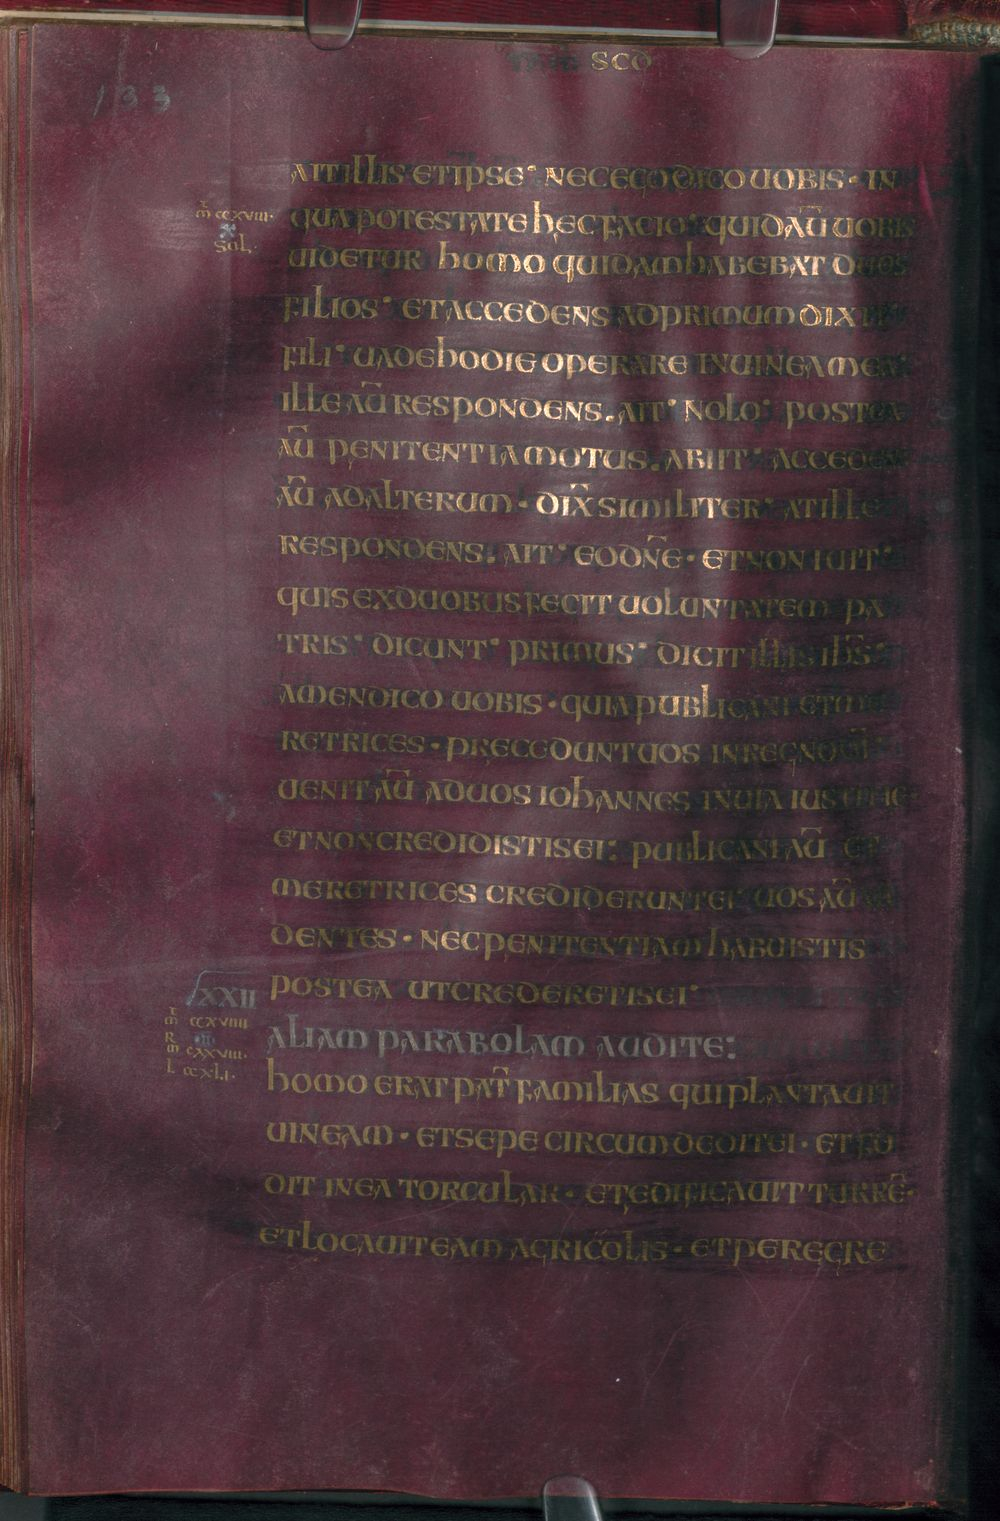 133
SCD
AIT ILLIS ET IPSE · NEC EGO DICO UOBIS · IN
m̄ CCXVIII·
X
SOL·
QUA POTESTATE HEC FACIO · QUID AŪ UOBIS
UIDETUR HOMO QUIDAM HABEBAT DUOS
FILIOS · ET ACCEDENS AD PRIMUM DIXIT
FILI · UADE HODIE OPERARE IN UINEA MEA ·
ILLE AŪ RESPONDENS. AIT · NOLO · POSTEA
AŪ PENITENTIA MOTUS. ABIIT · ACCEDENS
AŪ AD ALTERUM · DIX̄ SIMILITER · AT ILLE
RESPONDENS. AIT · EO DN̄E · ET NON IUIT ·
QUIS EX DUOBUS FECIT UOLUNTATEM PA
TRIS · DICUNT · PRIMUS · DICIT ILLIS IH̄S ·
AMEN DICO UOBIS · QUIA PUBLICANI ET ME
RETRICES · PRECEDUNT UOS IN REGNO DĪ ·
UENIT AŪ AD UOS IOHANNES IN UIA IUSTITIE ·
ET NON CREDIDISTIS EI : PUBLICANI AŪ ET
MERETRICES CREDIDERUNT EI · UOS AŪ UI
DENTES · NEC PENITENTIAM HABUISTIS
POSTEA UT CREDERETIS EI ·
LXXII
m̄ CCXVIIII
R II
m CXXVIII·
L CCXLI·
ALIAM PARABOLAM AUDITE :
HOMO ERAT PAT̄ FAMILIAS QUI PLANTAUIT
UINEAM · ET SEPE CIRCUMDEDIT EI · ET FO
DIT IN EA TORCULAR · ET EDIFICAUIT TURRĒ ·
ET LOCAUIT EAM AGRICOLIS · ET PEREGRE